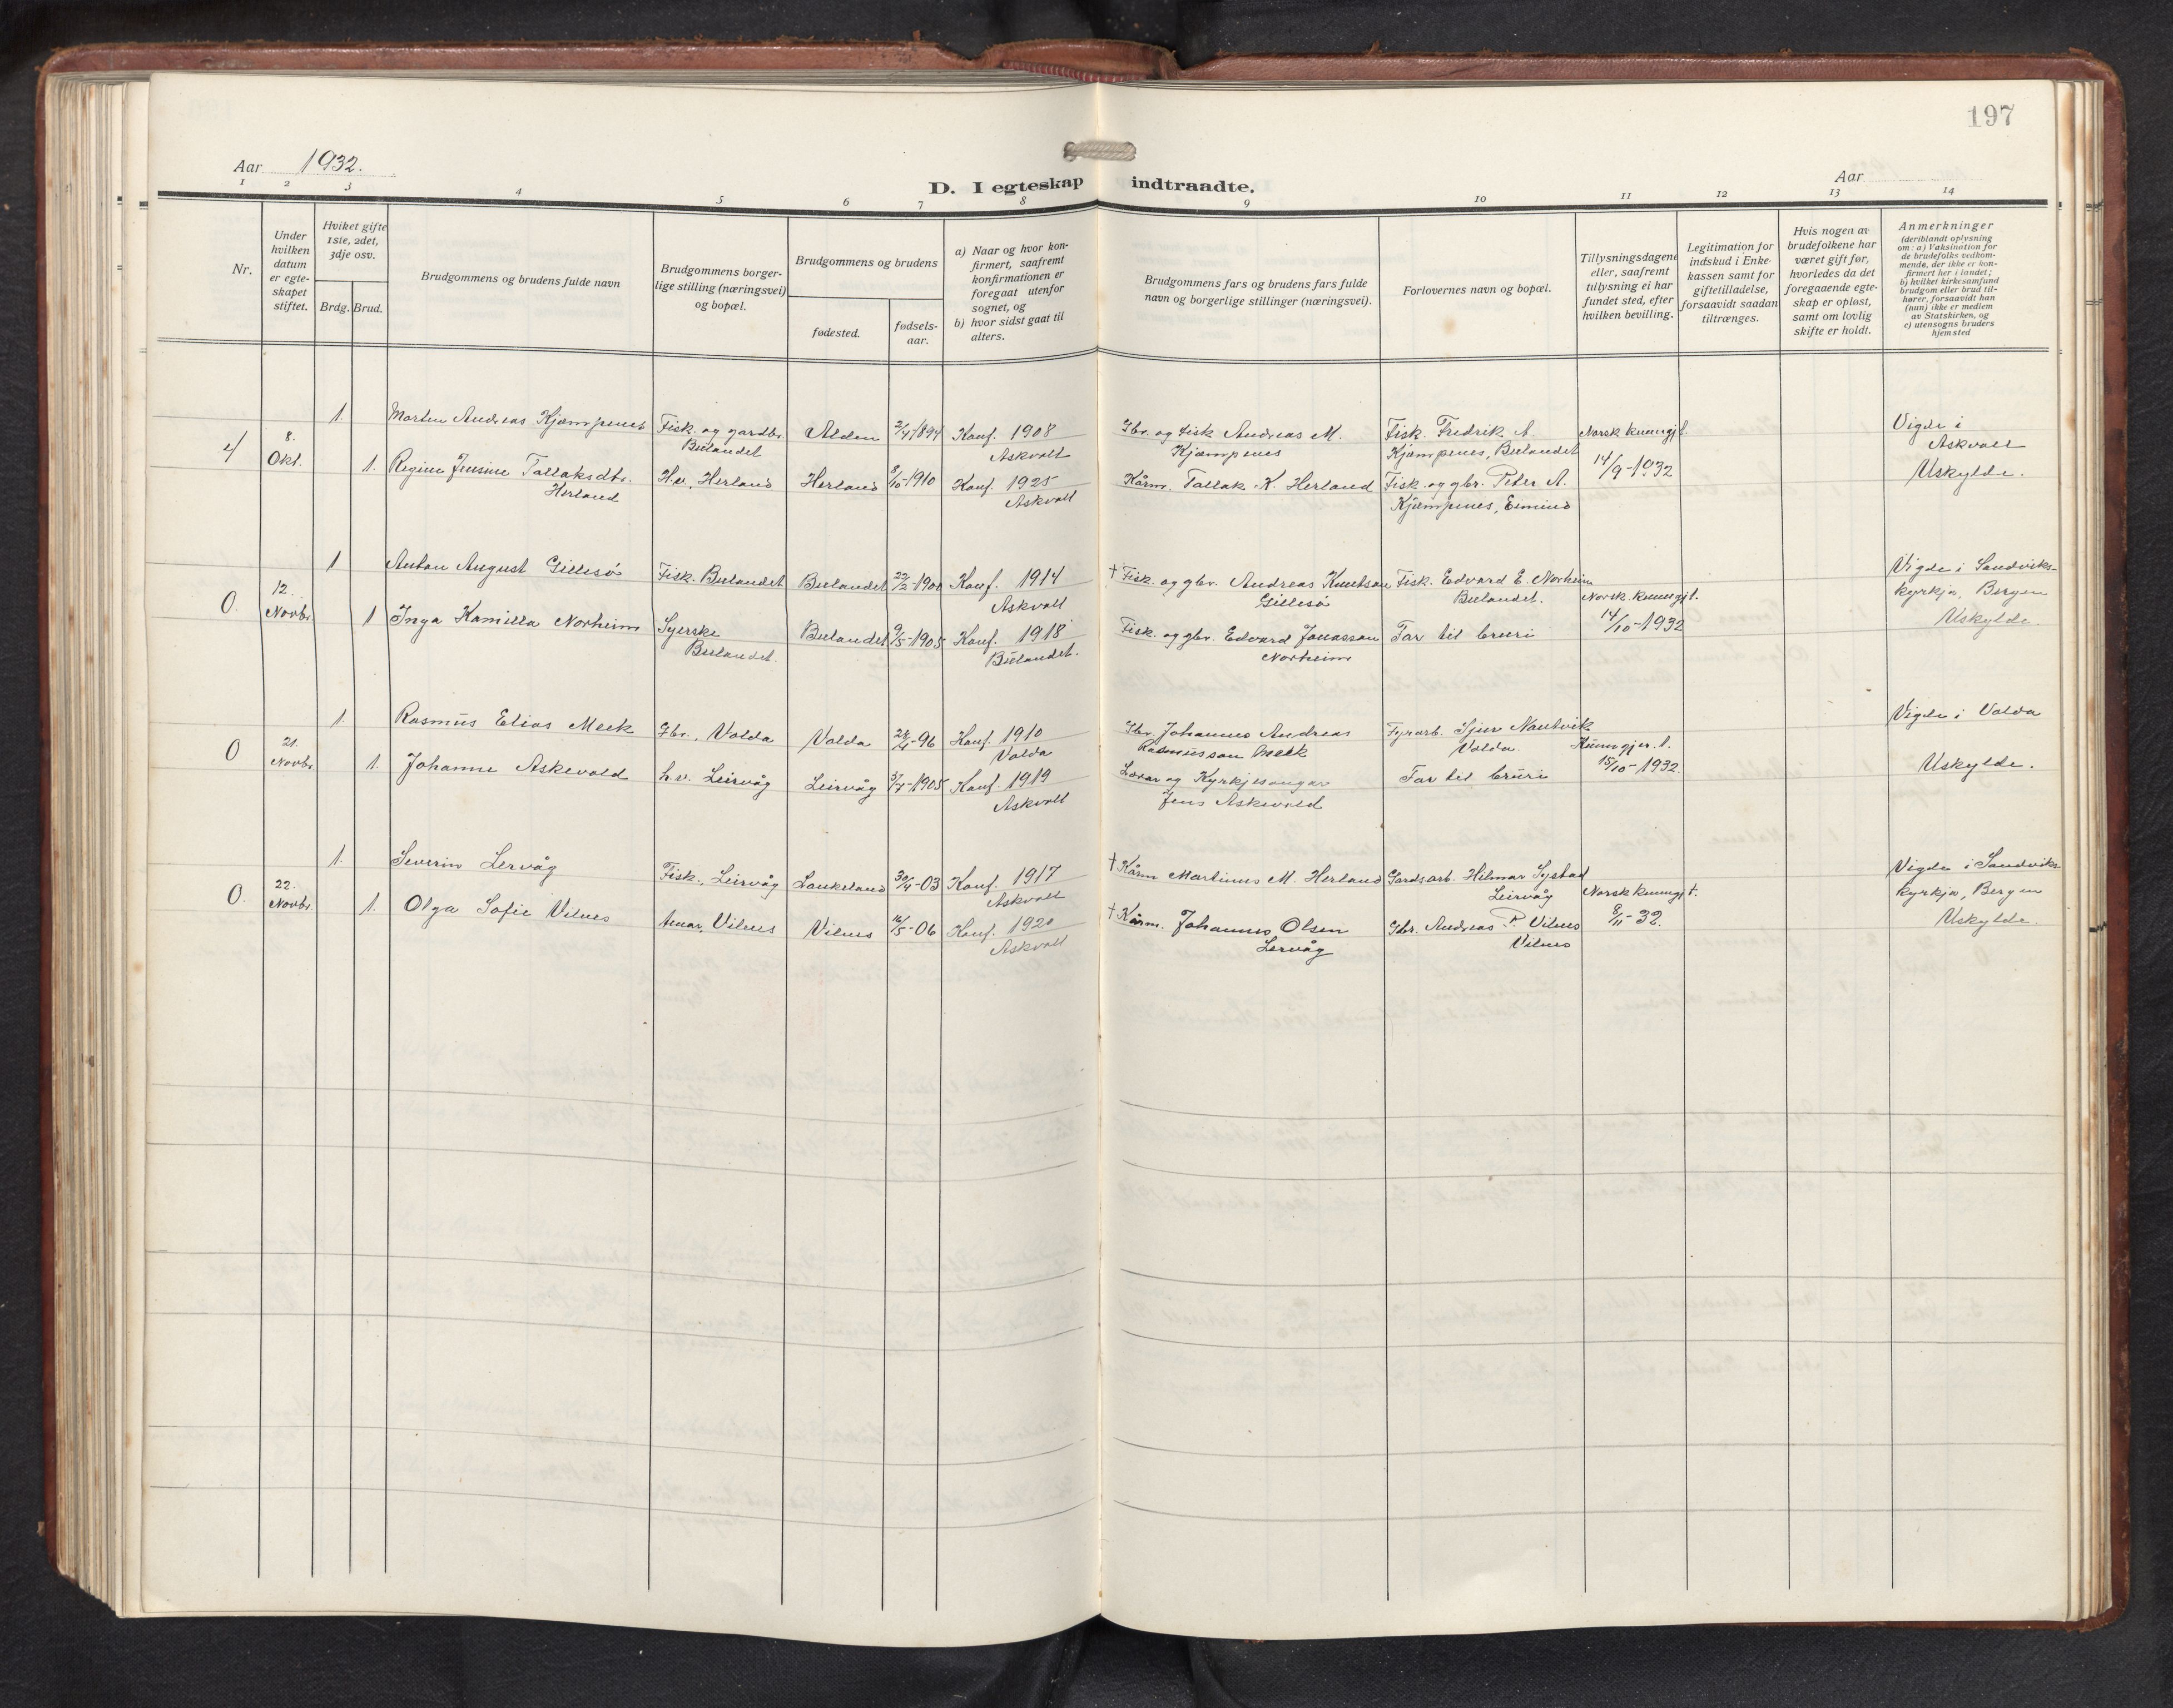 197
Aar 1932.
Aar
D. I egteskap indtraadte.
1 2 3 4 5 6 7 8 9 10 11 12 13 14
Nr.
Under hvilken datum er egte-skapet stiftet.
Hviket gifte 1ste, 2det, 3dje osv.
Brdg. Brud.
Brudgommens og brudens fulde navn
Brudgommens borger-lige stilling (næringsvei) og bopæl.
Brudgommens og brudens
fødested.
fødsels-aar.
a) Naar og hvor kon-firmert, saafremt konfirmationen er foregaat utenfor sognet, og
b) hvor sidst gaat til alters.
Brudgommens fars og brudens fars fulde navn og borgerlige stillinger (næringsvei).
Forlovernes navn og bopæl.
Tillysningsdagene eller, saafremt tillysning ei har fundet sted, efter hvilken bevilling.
Legitimation for indskud i Enke-kassen samt for giftetilladelse, forsaavidt saadan tiltrænges.
Hvis nogen av brudefolkene har været gift før, hvorledes da det foregaaende egte-skap er opløst, samt om lovlig skifte er holdt.
Anmerkninger
(deriblandt oplysning om: a) Vaksination for de brudefolks vedkom-mende, der ikke er kon-firmert her i landet; b) hvilket kirkesamfund brudgom eller brud til-hører, forsaavidt han (hun) ikke er medlem av Statskirken, og c) utensogns bruders hjemsted
4
8. Okt.
1. Morten Andreas Kjæmpenes
Fisk. og gardbr. Bulandet
Alden
2/4 1894
Konf. 1908 Askvoll
Gbr. og fisk Andreas M. Kjæmpenes
Fisk. Fredrik A. Kjæmpenes, Bulandet
Norsk kunngj.t. 14/9-1932
Vigde i Askvoll
Uskylde.
1. Regine Jensine Tallaksdtr. Herland
H.v., Herland
Herland
8/10-1910
Konf. 1925 Askvoll
Kårm. Tallak K. Herland
Fisk. og gbr. Peter A. Kjæmpenes,
0.
12. Novbr.
1 Anton August Gillesø
Fisk. Bulandet
Bulandet
22/2-1900
Konf. 1914 Askvoll
† Fisk. og gbr. Andreas Knutson Gillesø
Fisk. Edvard E. Norheim Bulandet.
Norsk kunngj.t. 14/10-1932
Vigde i Sandviks-kyrkja, Bergen
Uskylde.
1 Inga Kamilla Norheim
Syerske Bulandet.
Bulandet
9/5-1905
Konf. 1918 Bulandet.
Fisk. og gbr. Edvard Jonasson Norheim
Far til bruri
0
21. Novbr.
1. Rasmus Elias Meek
Gbr., Volda
Volda
-96
Konf. 1910 Volda
Gbr. Johannes Andreas Rasmusson Meek
Fyrarb. Sjur Nautvik Volda.
Kunngjer.t. 15/10-1932.
Vigde i Volda
Uskylde.
1. Johanne Askevold
h.v. Leirvåg
Leirvåg
-1905
Konf. 1919 Askvoll
Lærar og Kyrkjesongar Jens Askevold
Far til bruri
0.
22. Novbr.
1. Severin Lervåg
Fisk., Leirvåg
Laukeland
30/4-03
Konf. 1917 Askvoll
† Kårm Martinus M. Herland
Gardsarb. Hilmar Systad Leirvåg
Norsk kunngj.t. 8/11-32.
Vigde i Sandviks-kyrkja, Bergen
Uskylde.
1. Olga Sofie Vilnes
tenar, Vilnes
Vilnes
16/5-06
Konf. 1920 Askvoll
† Kårm. Johannes Olsen Lervåg
Gbr. Andreas P. Vilnes Vilnes